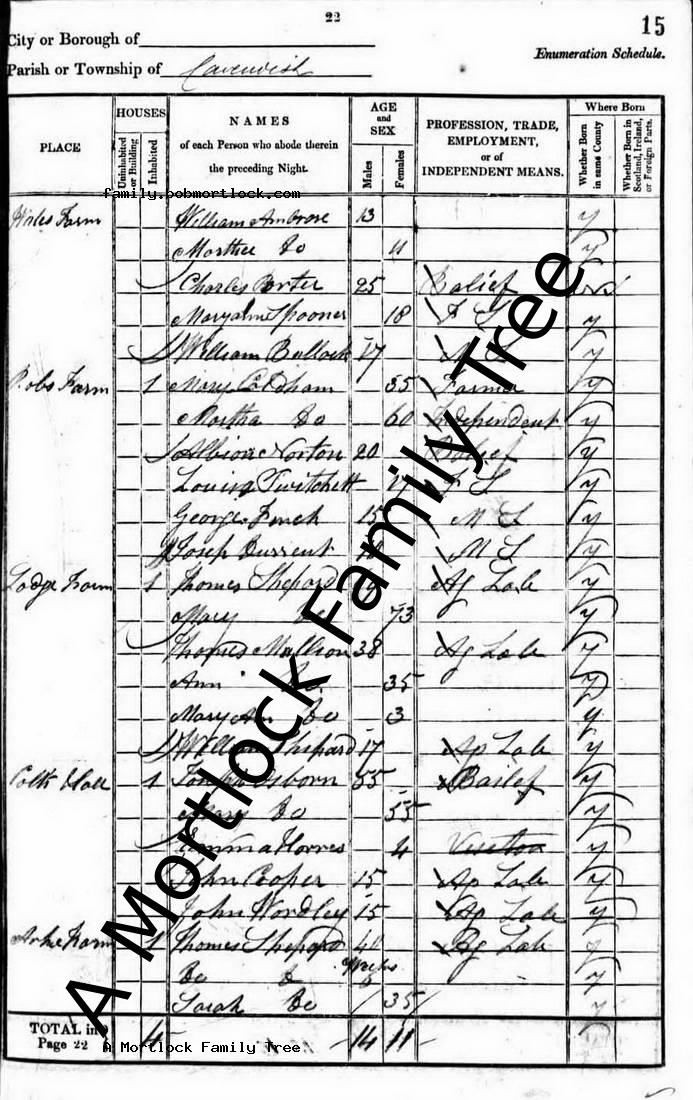 22
15
City or Borough of
Enumeration Schedule.
Parish or Township of Cavendish
PLACE
HOUSES
Uninhabited or Building
Inhabited
NAMES
of each Person who abode therein
the preceding Night.
AGE
and
SEX
Males
Females
PROFESSION, TRADE,
EMPLOYMENT,
or of
INDEPENDENT MEANS.
Where Born
Whether Born in same County
Whether Born in Scotland, Ireland, or Foreign Parts.
family.pobmortlock.com
Farm William Ambrose 13 y
Do 11 y
Charles Porter 25 Balief
Spooner 18 F S y
William Bullock 17 M S y
Robs Farm 1 Mary Coldham 35 Farmer y
Martha Do 60 Independent y
Albion Norton 20 Balief y
Louisa Twitchett 17 F S y
George French 15 M S y
Josep Durrent M S y
Lodge Farm 1 Thomes Shepard Ag Lab y
Mary Do 73 y
Thomes Mallion 38 Ag Lab y
Ann Do 35 y
Mary An Do 3 y
William Shepard 17 Ap Lab y
Hall 1 Osborn 55 Bailef y
Mary Do 55 y
Emma 4 y
John Cooper 15 Ap Lab y
John Wordley 15 Ap Lab y
Farm 1 Thomes Shepard 40 Ag Lab y
Do Do Weeks y
Sarah Do 35 y
TOTAL in
Page 22 4 14 11
A Mortlock Family Tree
A Mortlock Family Tree